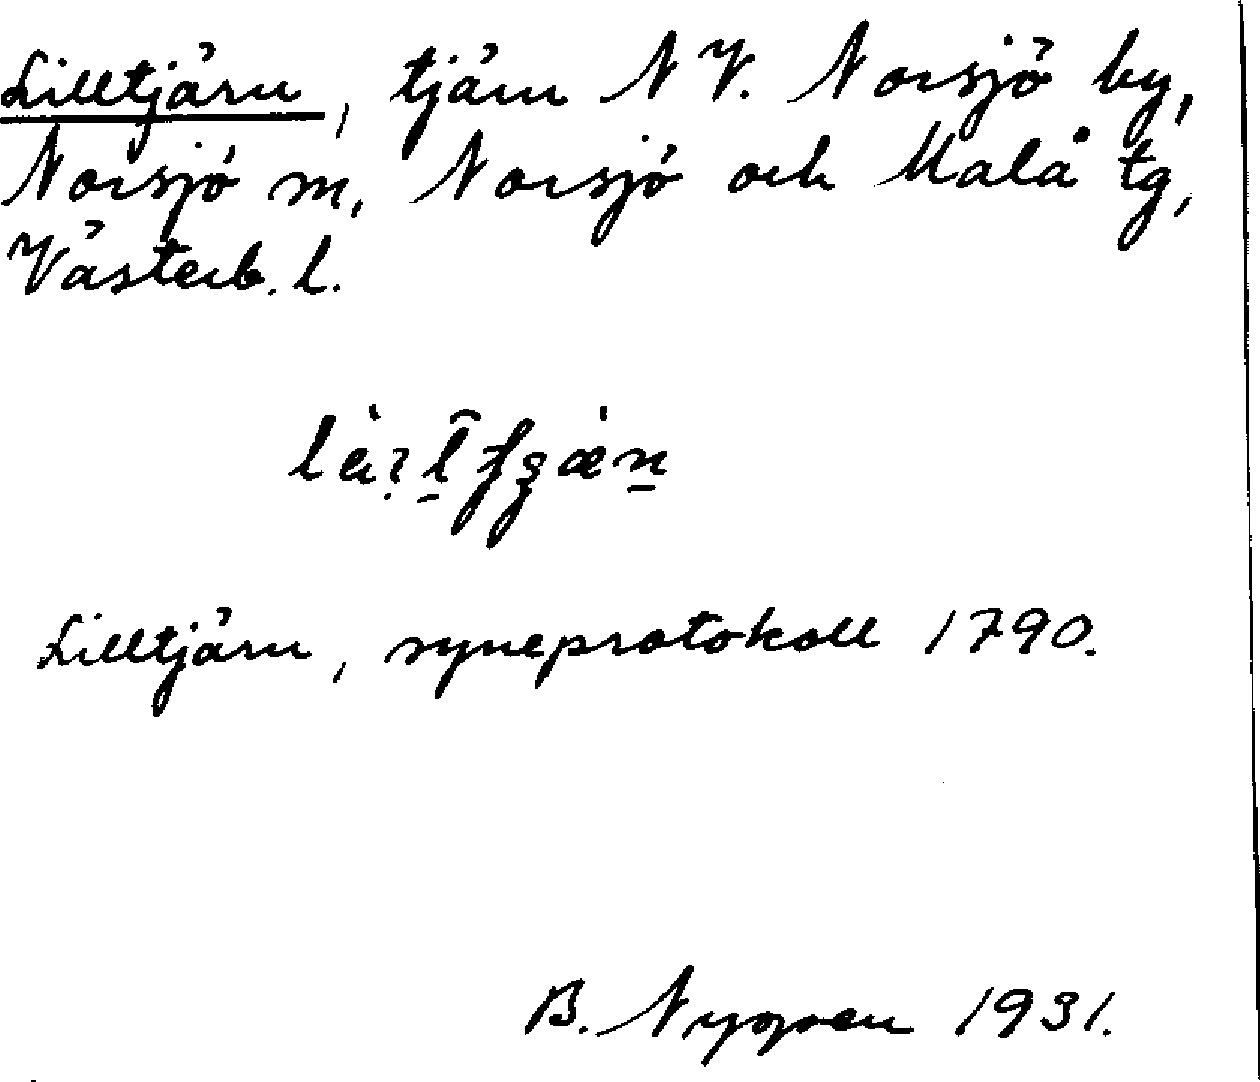 Lilltjärn, tjärn N V. Norsjö by,
Norsjö m, Norsjö och Malå tg,
Västerb. l.
Lilltjärn, syneprotokoll 1790.
B. 1931.